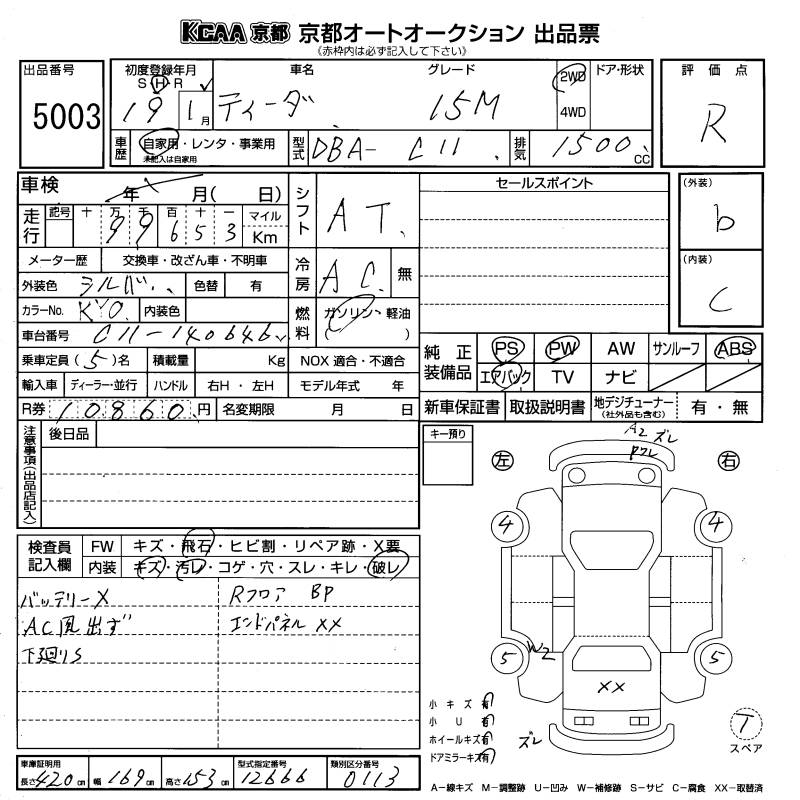 KCAA 京都 京都オートオークション 出品票
《赤枠内は必ず記入して下さい》
出品番号
5003
初度登録年月
S H R
19 1月
車名
ティーダ
グレード
15M
2WD
4WD
ドア・形状
評価点
R
車歴
自家用・レンタ・事業用
未記入は自家用
型式
DBA- C11
排気
1500 CC
車検
年 月( 日)
シフト
AT
セールスポイント
(外装)
b
(内装)
C
走行
記号 十 万 千 百 十 一
99653
マイル
Km
メーター歴 交換車・改ざん車・不明車
冷房
AC
無
外装色 シルバー 色替 有
カラーNo. KY0 内装色
燃料
ガソリン・軽油
( )
車台番号 C11-140646
乗車定員 (5)名 積載量 Kg NOX 適合・不適合
純正装備品
PS PW AW サンルーフ ABS
エアバック TV ナビ
輸入車 ディーラー・並行 ハンドル 右H・左H モデル年式 年
R券 10860円 名変期限 月 日
新車保証書 取扱説明書 地デジチューナー(社外品も含む) 有・無
注意事項(出品店記入)
後日品
キー預り
左
右
A2 ズレ
ワレ
4
4
検査員記入欄
FW キズ・飛石・ヒビ割・リペア跡・X要
内装 キズ・汚レ・コゲ・穴・スレ・キレ・破レ
バッテリーX
AC風出ず
下廻りS
Rフロア BP
エンドパネル XX
W2
5
5
XX
小キズ有
小U有
ホイールキズ有
ドアミラーキズ有
ズレ
T
スペア
車庫証明用
長さ420cm 幅169cm 高さ153cm
型式指定番号
12666
類別区分番号
0113
A-線キズ M-調整跡 U-凹み W-補修跡 S-サビ C-腐食 XX-取替済